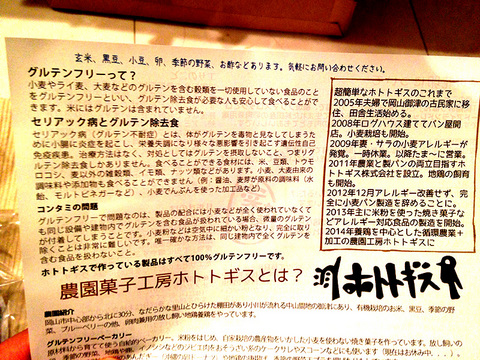 玄米、黒豆、小豆、卵、季節の野菜、お酢などあります。気軽にお問い合わせください。
グルテンフリーって？
小麦やライ麦、大麦などのグルテンを含む穀類を一切使用していない食品のこと
をグルテンフリーといい、グルテン除去食が必要な人も安心して食べることがで
きます。米にはグルテンは含まれていません。
セリアック病とグルテン除去食
セリアック病（グルテン不耐症）とは、体がグルテンを毒物と見なしてしまうた
めに小腸に炎症を起こし、栄養失調になり様々な悪影響を引き起こす遺伝性自己
免疫疾患。治療方法はなく、対応としてはグルテンを摂取しないこと、つまりグル
テン除去食しかありません。食べることができる食材には、米、豆類、トウモ
ロコシ、麦以外の雑穀類、イモ類、ナッツ類などがあります。小麦、大麦由来の
調味料や添加物も食べることができません（例：醤油、麦芽が原料の調味料（水
飴、モルトビネガーなど）、小麦でんぷんを使った加工品など）
コンタミの問題
グルテンフリーで問題なのは、製品の配合には小麦などが全く使われていなくて
も同じ設備や建物内でグルテンを含む食品が扱われている場合、微量のグルテン
が付着してしまうことです。小麦粉などは空気中に細かい粉となり、完全に取り
除くことは非常に難しいです。唯一確かな方法は、同じ建物内で全くグルテンを
含む食品を扱わないこと。
ホトトギスで作っている製品はすべて100%グルテンフリーです。
超簡単なホトトギスのこれまで
2005年夫婦で岡山御津の古民家に移
住、田舎生活始める。
2008年ログハウス建ててパン屋開
店。小麦栽培も開始。
2009年妻・サラの小麦アレルギーが
発覚。一時休業。以降たま〜に営業。
2011年農業と製パンの両立目指すホ
トトギス株式会社を設立。地鶏の飼育
も開始。
2012年12月アレルギー改善せず、完
全に小麦パン製造を辞めることに。
2013年主に米粉を使った焼き菓子な
どアレルギー対応食品の製造を開始。
2014年養鶏を中心とした循環農業＋
加工の農園工房ホトトギスに
農園菓子工房ホトトギスとは？
ホトトギス
農園紹介
岡山市中心部から北に30分、なだらかな里山とひらけた棚田があり小川が流れる中山間地の
菜、ブルーベリーの他、
グルテンフリーベーカリー